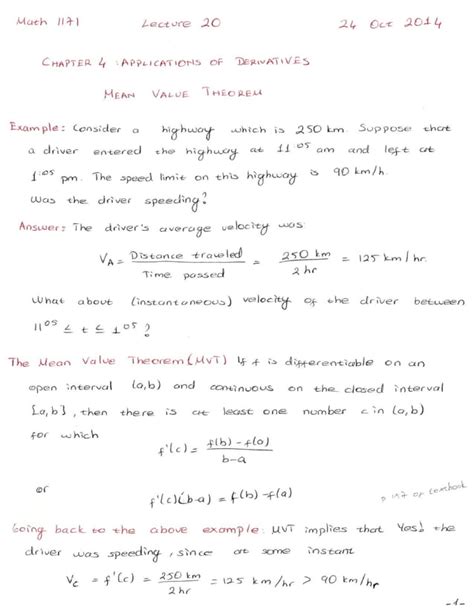 Math 1171 Lecture 20 24 Oct 2014
CHAPTER 4 : APPLICATIONS OF DERIVATIVES
MEAN VALUE THEOREM
Example: Consider a highway which is 250 km. Suppose that
a driver entered the highway at 11⁰⁵ am and left at
1:⁰⁵ pm. The speed limit on this highway is 90 km/h.
Was the driver speeding?
Answer: The driver's average velocity was:
V_A = Distance traveled / Time passed = 250 km / 2 hr = 125 km/hr.
What about (instantaneous) velocity of the driver between
11⁰⁵ ≤ t ≤ 1⁰⁵ ?
The Mean Value Theorem (MVT) If f is differentiable on an
open interval (a,b) and continuous on the closed interval
[a,b], then there is at least one number c in (a,b)
for which
f'(c) = f(b) - f(a) / b-a
or
f'(c)(b-a) = f(b) - f(a)
Going back to the above example: MVT implies that Yes! the
driver was speeding, since at some instant
V_c = f'(c) = 250 km / 2 hr = 125 km/hr > 90 km/hr
-1-